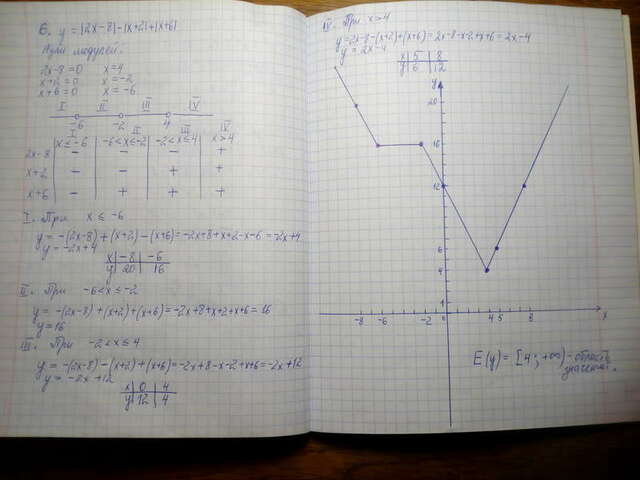 6. y = |2x-8| - |x+2| + |x+6|
Нули модулей:
2x-8=0 x=4
x+2=0 x=-2
x+6=0 x=-6
I II III IV
-6 -2 4
I II III IV
x ≤ -6 -6<x≤-2 -2<x≤4 x>4
2x-8 - - - +
x+2 - - + +
x+6 - + + +
I. При x ≤ -6
y = -(2x-8)+(x+2)-(x+6)=-2x+8+x+2-x-6=-2x+4
y = -2x+4
x -8 -6
y 20 16
II. При -6<x≤-2
y = -(2x-8)+(x+2)+(x+6)=-2x+8+x+2+x+6=16
y=16
III. При -2<x≤4
y = -(2x-8)-(x+2)+(x+6)=-2x+8-x-2+x+6=-2x+12
y = -2x+12
x 0 4
y 12 4
IV. При x>4
y=2x-8-(x+2)+(x+6)=2x-8-x-2+x+6=2x-4
y=2x-4
x 5 8
y 6 12
y
20
16
12
6
4
1
-8 -6 -2 0 4 5 8 x
E(y) = [4; +∞) - область
значений.